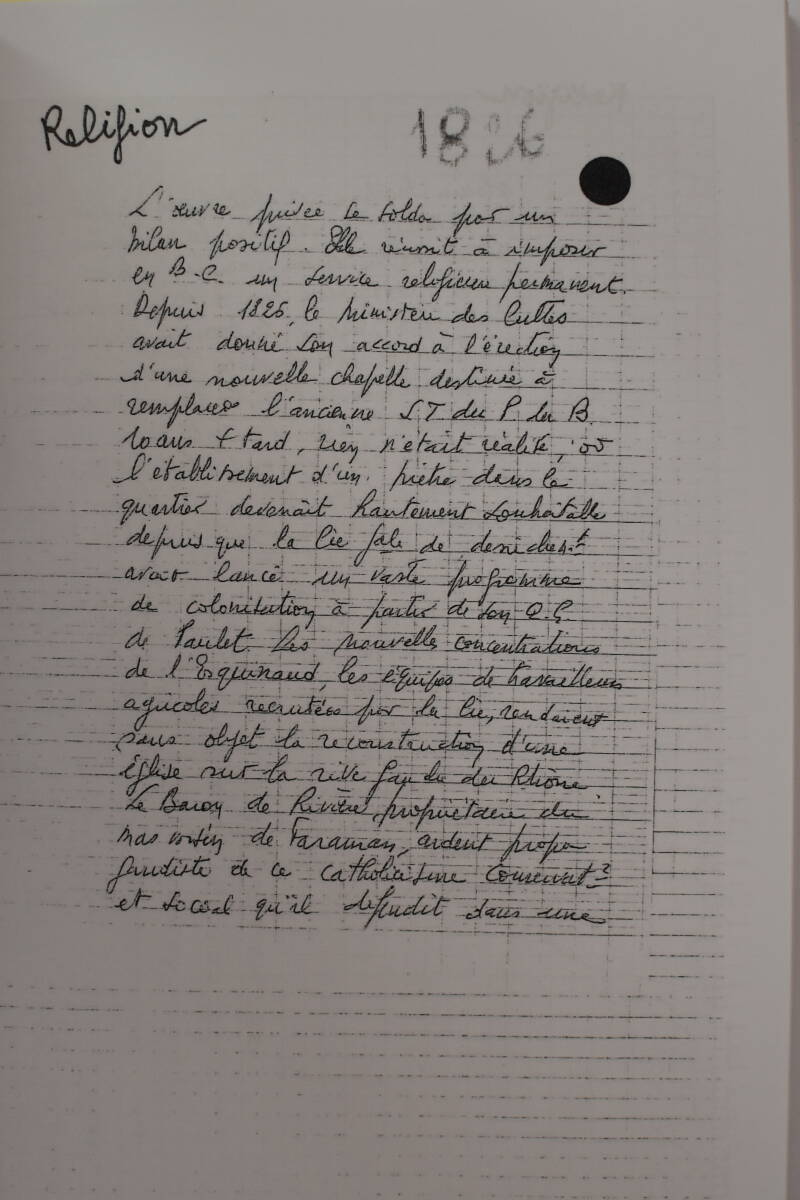 Religion
1826
L'œuvre privée se solda par un
bilan positif. Elle réussit à imposer
en B.C. un service religieux permanent.
Depuis 1825, le Ministère des Cultes
avait donné son accord à l'érection
d'une nouvelle chapelle destinée à
remplacer l'ancienne S T du P. du B.
10 ans + tard, rien n'était réalisé, or
l'établissement d'un prêtre dans le
quartier devenait hautement souhaitable
depuis que la Cie gale de
avait lancé un vaste programme
de colonisation à partir de son Q.G.
de Paulet. Les nouvelle concentrations
de l'Esquinaud, les équipes de travailleurs
agricoles recrutées par la Cie, rendaient
sans objet la reconstruction d'une
église sur la rive gauche du Rhône.
Le Baron de Rivière, propriétaire du
mas voisin de Faraman, ardent propa
gandiste de ce catholicisme
et social qu'il défendit dans une